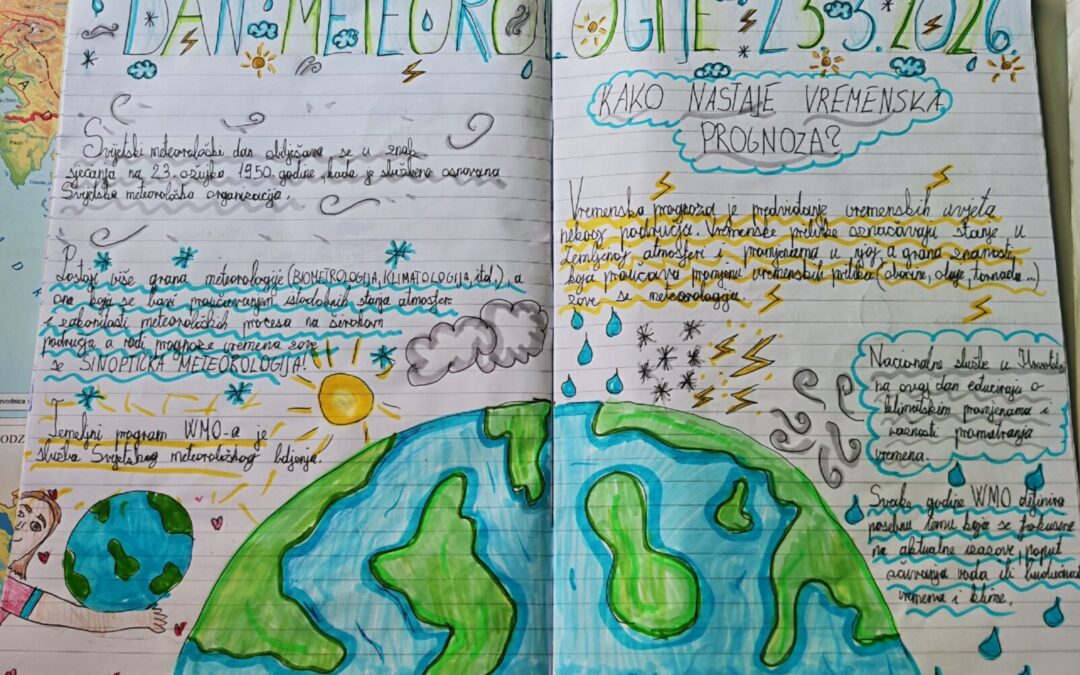 DAN METEOROLOGIJE 23.3.2026.
Svjetski meteorološki dan obilježava se u znak
sjećanja na 23. ožujka 1950. godine, kada je službeno osnovana
Svjetska meteorološka organizacija.
Postoji više grana meteorologije (BIOMETROLOGIJA, KLIMATOLOGIJA, itd.), a
ona koja se bavi proučavanjem istodobnih stanja atmosfere
i zakonitosti meteoroloških procesa na širokom
području a radi prognoze vremena zove
se SINOPTIČKA METEOROLOGIJA!
Temeljni program WMO-a je
služba Svjetskog meteorološkog bdjenja.
KAKO NASTAJE VREMENSKA
PROGNOZA?
Vremenska prognoza je predviđanje vremenskih uvjeta
nekog područja. Vremenske prilike označavaju stanje u
Zemljinoj atmosferi i promjenama u njoj a grana znanosti
koja proučava promjenu vremenskih prilika (oborine, oluje, tornada...)
zove se meteorologija.
Nacionalne službe u Hrvatskoj
na ovaj dan educiraju o
klimatskim promjenama i
važnosti promatranja
vremena.
Svake godine WMO definira
posebnu temu koja se fokusira
na aktualne izazove, poput
očuvanja voda ili budućnosti
vremena i klime.